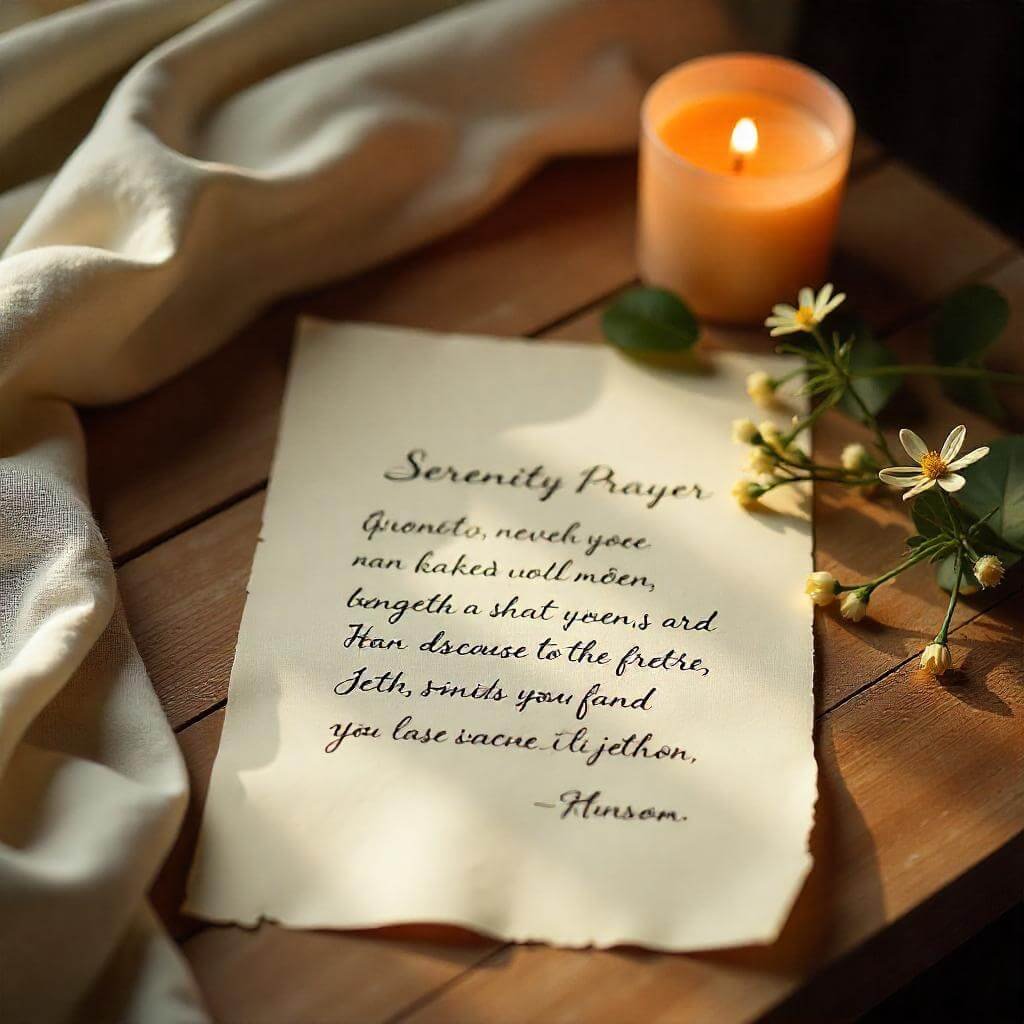 Serenity Prayer
Guoneto, neveh yoee
nan kaked uoll möen,
bengeth a shat yoeen,s ard
Han dscouse to the fretre,
Jeth, sinids you fand
you lase sacne ili jethon,
–Hunsom.